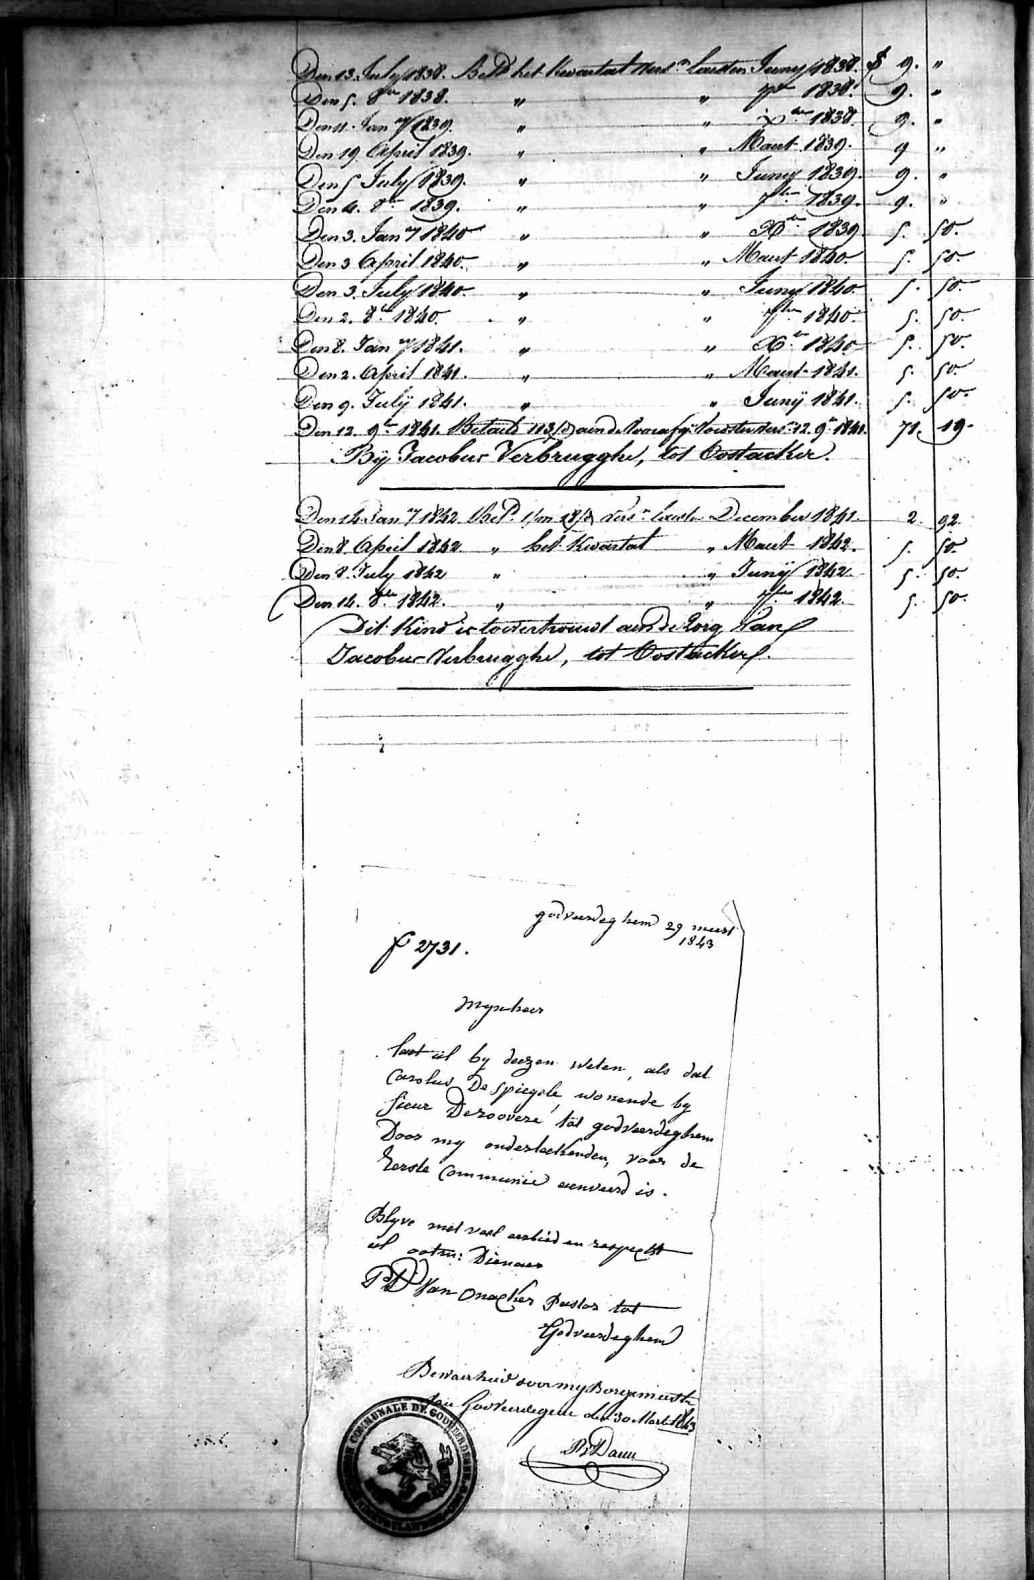 Den 13. July 1838. Betd het Kwartaal Vers.n laesten Juny 1838. 9. "
Den 5. 8br 1838. " " 7br 1838. 9. "
Den 11. Jan.ry 1839. " " Xber 1838. 9. "
Den 19 April 1839. " " Maart 1839. 9 "
Den 5 July 1839. " " Juny 1839. 9. "
Den 4. 8br 1839. " " 7ber 1839. 9. "
Den 3. Jan.ry 1840 " " Xber 1839 5. 50.
Den 3 April 1840. " " Maart 1840 5. 50
Den 3. July 1840. " " Juny 1840. 5. 50.
Den 2. 8br 1840. " " 7ber 1840. 5. 50.
Den 8. Jan.ry 1841. " " Xber 1840 5. 50.
Den 2. April 1841. " " Maart 1841. 5. 50
Den 9. Julÿ 1841. " " Junÿ 1841. 5. 50.
Den 12. 9br 1841. Betaelt aen de 12. 9br 1841. 71. 19.
Bÿ Jacobus Verbrugghe, tot Oostacker.
Den 14. Jan.ry 1842. Bet. Vers.n laeste December 1841. 2. 92.
Den 8. April 1842 " het Kwartaal " Maart 1842. 5. 50.
Den 8. July 1842 " " Junÿ 1842. 5. 50.
Den 14. 8br 1842. " " 7ber 1842. 5. 50.
Dit Kind is toevertrouwt aen de Zorg van
Jacobus Verbrugghe, tot Oostacker.
godveerdeghem 29 meert
1843
f° 2731.
Mynheer
laet ul by deezen weten, als dat
Carolus De Spiegele, wonende by
sieur Deroovere, tot godveerdeghem
Door my onderteekenden, voor de
Eerste Communie aenveerd is.
Blyve met veel eerbied en respeckt
ul ootm: Dienaer
PD Van Onacker Pastor tot
Godveerdeghem
Bewaerheid door my Borgemeester
Godveerdegem den 30 Maert 1843
COMMUNALE DE